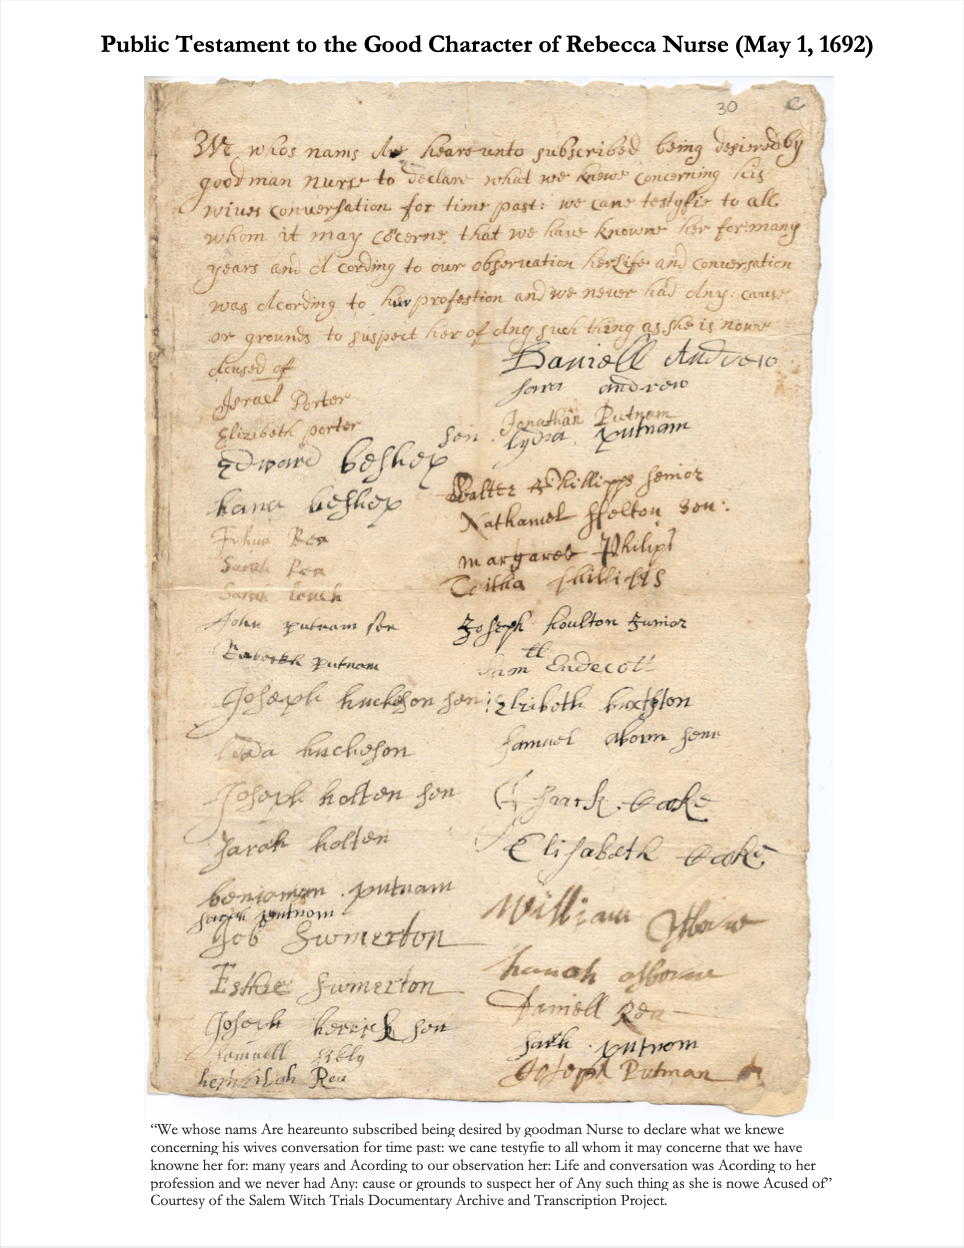 Public Testament to the Good Character of Rebecca Nurse (May 1, 1692)
30 C
We whos nams Are heareunto subscribed being desiered by
goodman nurse to declare what we knewe concerning his
wives conversation for time past: we cane testyfie to all
whom it may cocerne that we have knowne her for many
years and Acording to our observation her Life and conversation
was Acording to hur profestion and we never had Any: cause
or grounds to suspect her of Any such thing as she is nowe
Acused of
Israel Porter
Elizibeth porter
Edward beshep
hana beshep
Rea
Sarah Rea
Sarah
John putnam sen
putnam
Joseph huchson sen
huchson
Joseph holten sen
Sarah holten
beniaman putnam
putnam
Job Swinerton
Esther Swinerton
Joseph herrick sen
Samuell sibly
Rea
Daniell Andrew
Sara andrew
Jonathan Putnam
lydia putnam
sen
Walter Phillipps senior
Nathaniel ffelton sen:
margaret Philips
phillips
Joseph houlton Junior
Endecott
Elzibeth
Samuel aborn senr
Cooke
Elisabeth Cooke
William
hanah osborne
Daniell Rea
Sarah putnam
Joseph Putman
“We whose nams Are heareunto subscribed being desired by goodman Nurse to declare what we knewe
concerning his wives conversation for time past: we cane testyfie to all whom it may concerne that we have
knowne her for: many years and Acording to our observation her: Life and conversation was Acording to her
profession and we never had Any: cause or grounds to suspect her of Any such thing as she is nowe Acused of”
Courtesy of the Salem Witch Trials Documentary Archive and Transcription Project.